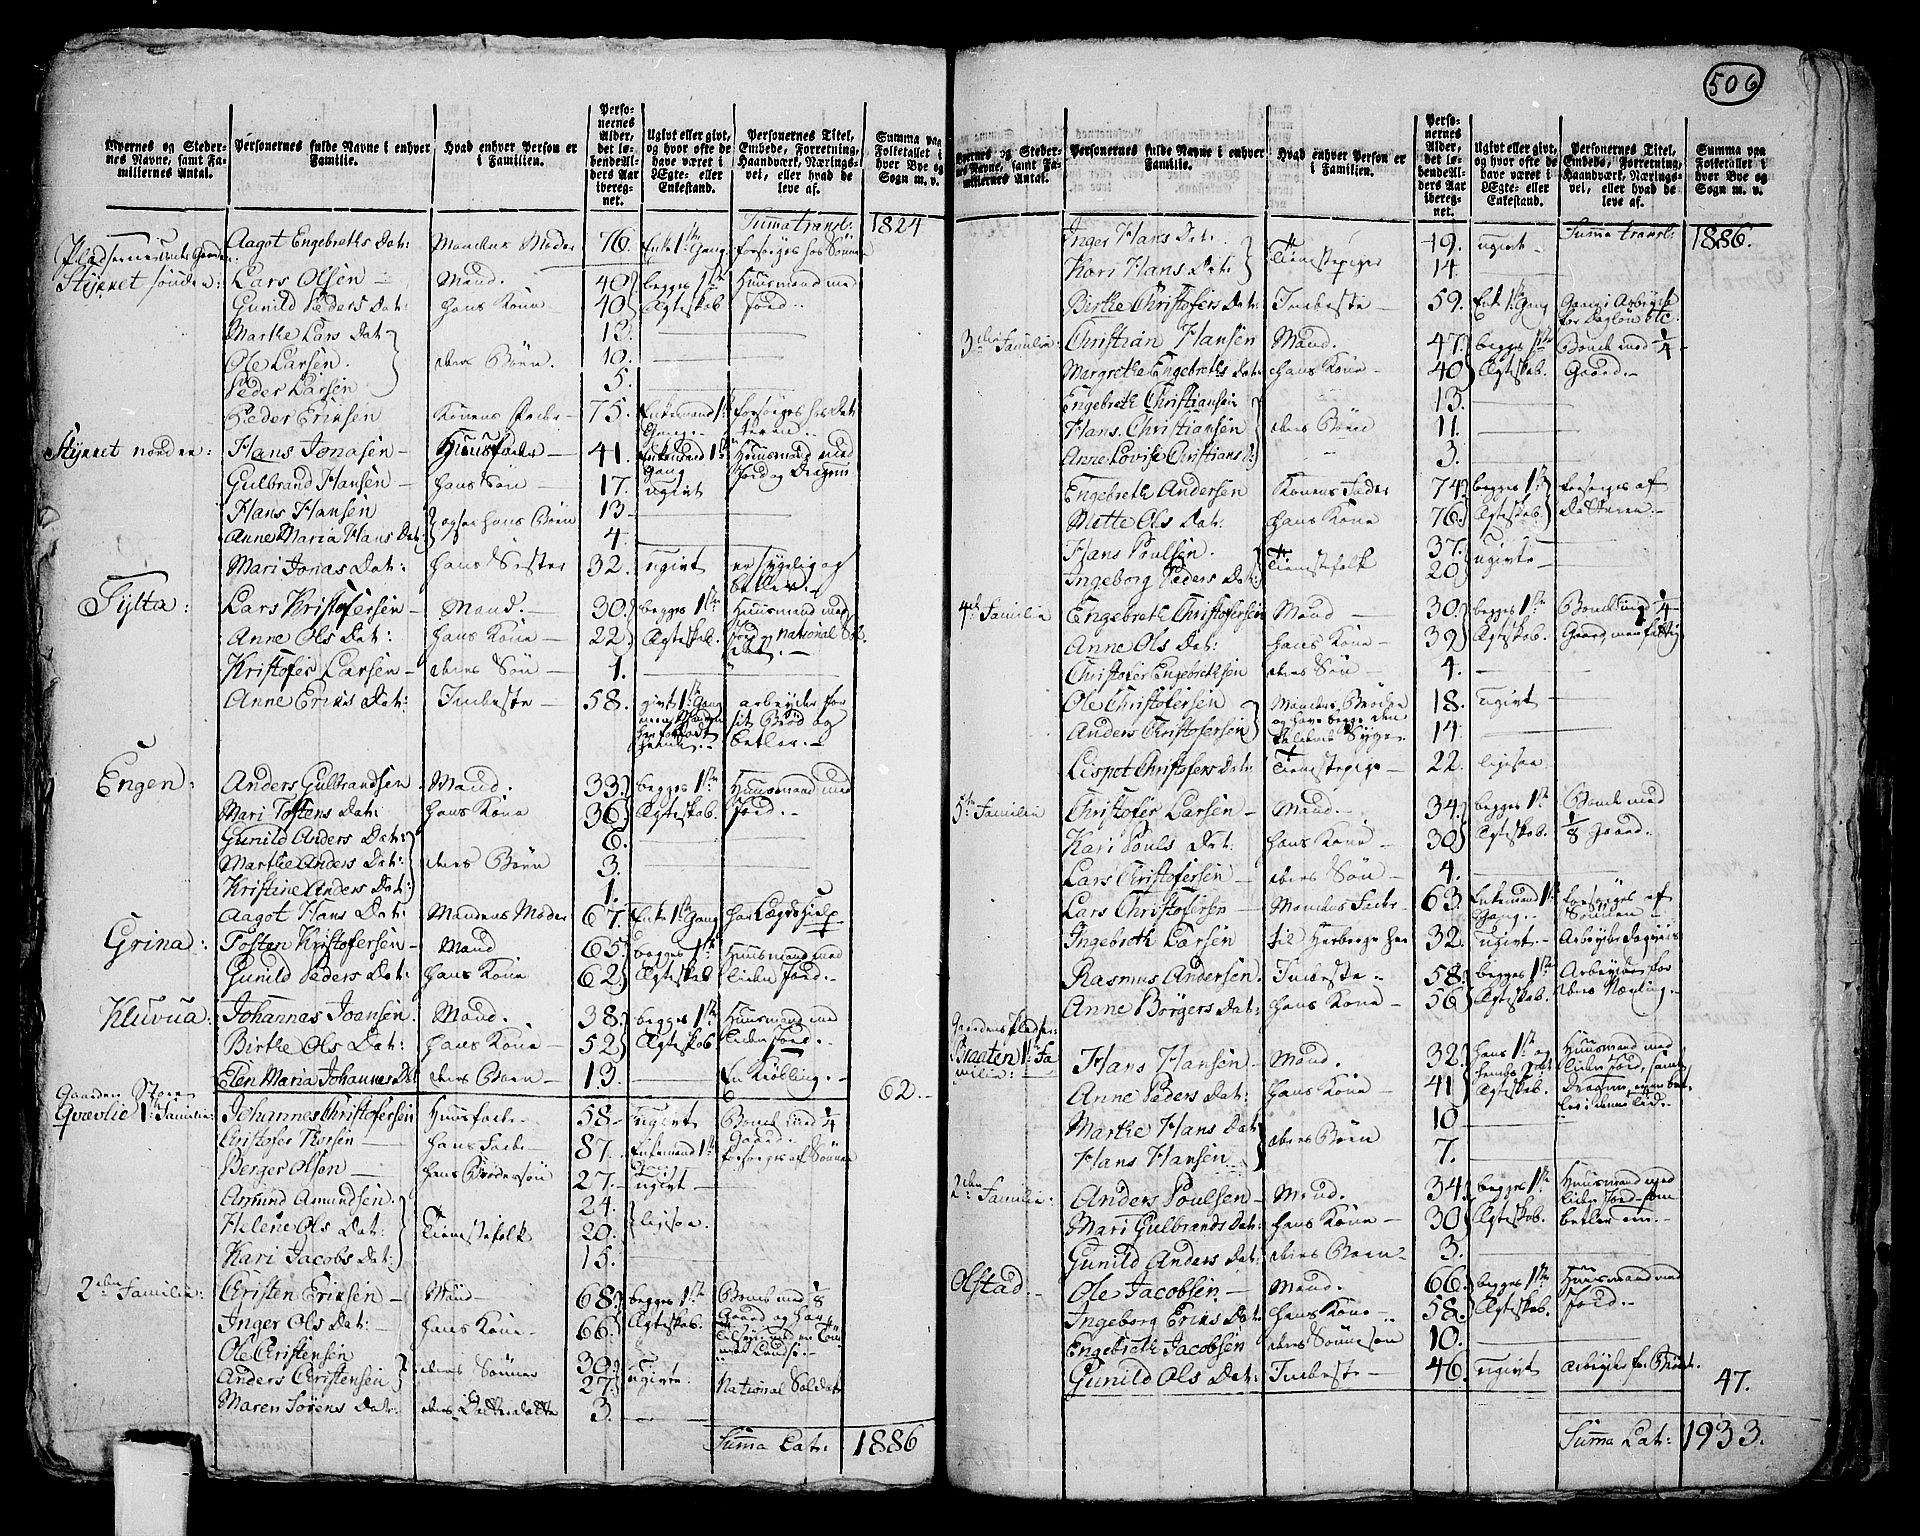 506
Byernes og Stedernes Navne, samt Familiernes Antal.
Personernes fulde Navne i enhver Familie.
Hvad enhver Person er i Familien.
Personernes Alder, det løbende Alders Aar iberegnet.
Ugivt eller givt, og hvor ofte de have været i Ægte- eller Enkestand.
Personernes Titel, Embede, Forretning, Haandværk, Næringsvei, eller hvad de leve af.
Summa paa Folketallet i hver Bye og Sogn m. v.
Summa transl: 1824
Aagot Engebreths Dat: Mandens Moder 76. Enke 1ste Gang forsørges hos Sønnen
Pladserne under Gaarden
Stÿxxet sønden: Lars Olsen — Mand. 40 begges 1ste Huusmand med
Gunild Peders Dat: hans Kone 40 Ægteskab Jord
Marthe Lars Dat 13.
Ole Larsen. deres Børn. 10.
Peder Larsen 5.
Peder Eriksen Konens Fader 75. Enkemand 1ste Gang forsørges hos Datteren
norden: Hans Jonasen — Huusfader 41. Enkemand 1ste Gang Huusmand med Jord og Dragon
Gulbrand Hansen — hans Søn — 17. ugivt
Hans Hansen 13
Anne Maria Hans Dat: ogsaa hans Børn 4.
Mari Jonas Dat: hans Søster 32. ugivt er sygelig og betler.
Tÿlta: Lars Kristofersen — Mand. 30. begges 1ste Huusmand med
Anne Ols Dat: hans Kone 22. Ægteskab. Jord og National Soldat. —
Kristofer Larsen — deres Søn — 1.
Anne Eriks Dat: Inderste — 58. givt 1ste Gang men Manden har forladt hende arbeyder for sit Brød og betler. —
Engen: Anders Gulbrandsen Mand. 33. begges 1ste Huusmand med
Mari Tostens Dat: hans Kone 36 Ægteskab. Jord. —
Gunild Anders Dat: 6.
Marthe Anders Dat: deres Børn 3.
Kristine Anders Dat: 1.
Aagot Hans Dat: Mandens Moder 67. Enke 1ste Gang har Lægdshielp
Grina: Tosten Kristofersen — Mand 65 begges 1ste Huusmand med
Gunild Peders Dat: hans Kone 62. Ægteskab liden Jord. —
Kluvua: Johannas Joansen. Mand. 38. begges 1ste Huusmand med
Birthe Ols Dat: hans Kone 52 Ægteskab liden Jord. —
Elen Maria Johannes Dat deres Barn — 13. En Krøbling. — 62. —
Gaarden Store
Qvævlie 1ste Familie: Johannes Christofersen Huusfader — 58 — ugivt Bonde med 1/4 Gaard. —
Cristofer Thorsen — hans Fader 87. Enkemand 1ste Gang forsørges af Sønnen
Berger Olsen — hans Brodersøn 27. — ugivt —
Amund Amundsen 24.
Helene Ols Dat: Tienestefolk 20. ligesaa.
Kari Jacobs Dat: 15.
2den Familie: Christen Eriksen — Mand — 68. begges 1ste Bonde med 1/8
Inger Ols Dat: — hans Kone — 66. Ægteskab. Gaard og har
Ole Cristensen 30
Anders Christensen deres Sønner 27. ugivte: National Soldat
Maren Sørens Dat: deres Datterdatter 3. —
Summa Lat: 1886
Byernes og Stedernes Navne, samt Familiernes Antal.
Personernes fulde Navne i enhver Familie.
Hvad enhver Person er i Familien.
Personernes Alder, det løbende Alders Aar iberegnet.
Ugivt eller givt, og hvor ofte de have været i Ægte- eller Enkestand.
Personernes Titel, Embede, Forretning, Haandværk, Næringsvei, eller hvad de leve af.
Summa paa Folketallet i hver Bye og Sogn m. v.
Summa transl: 1886.
Inger Hans Dat. 19. ugivt —
Kari Hans Dat: Tienestepiger 14.
Birthe Christofers Dat: Inderste — 59. Enke 1ste Gang Gaaer i Arbeyde for Dagløn etc.
3die Familie: Christian Hansen Mand. 47. begges 1ste Bonde med 1/4
Margrethe Engebreths Dat: hans Kone — 40 Ægteskab. Gaard. —
Engebreth Christiansen 13.
Hans Christiansen deres Børn 11.
Anne Lovise Christians D: 3.
Engebreth Andersen Konens Fader 74 begges 1ste forsørges af
Mette Ols Dat: hans Kone 76. Ægteskab. Datteren. —
Hans Poulsen. 37.
Ingeborg Peders Dat: Tienestefolk 20 ugivte —
4de Familie Engebreth Christofersen Mand — 30. begges 1ste Bonde med 1/4
Anne Ols Dat: hans Kone — 39 Ægteskab. Gaard, men fattig
Christofer Engebrethsen deres Søn — 4.
Ole Christofersen Mandens Brødre 18. ugivt —
Anders Christofersen og have begge den Syge 14.
Lispet Christofers Dat: Tienestepige — 22. ligesaa
5te Familie Christofer Larsen — Mand. 34. begges 1ste Bonde med
Kari Pouls Dat: hans Kone — 30 Ægteskab. 1/8 Gaard.
Lars Christofersen — deres Søn — 4.
Lars Christofersen — Mandens Fader — 63 Enkemand 1ste Gang. forsørges af Sønnen —
Ingebreth Larsen til Herberge her 32. ugivt —
Rasmus Andersen. Inderste — 58. begges 1ste Arbeyder for
Anne Børgers Dat: hans Kone — 56 Ægteskab. deres Næring. —
Gaardens Pladser:
Braaten 1ste Familie: Hans Hansen Mand. 32. hans 1ste og Huusmand med
Anne Peders Dat: hans Kone — 41 Ægteskab.
Marthe Hans Dat 10
Hans Hansen deres Børn 7.
2den Familie: Anders Poulsen — Mand. 34. begges 1ste Huusmand med
Mari Gulbrands Dat: hans Kone — 30 Ægteskab. liden Jord — som betler
Gunild Anders Dat: deres Barn — 3.
Olstad. — Ole Jacobsen — Mand. 66. begges 1ste Huusmand med
Ingeborg Eriks Dat: hans Kone — 58. Ægteskab. Jord. —
Engebreth Jacobsen deres Sønnesøn 10.
Gunild Ols Dat: Inderste — 46. ugivt arbeyder for Brød. 47.
Summa Lat: 1933.